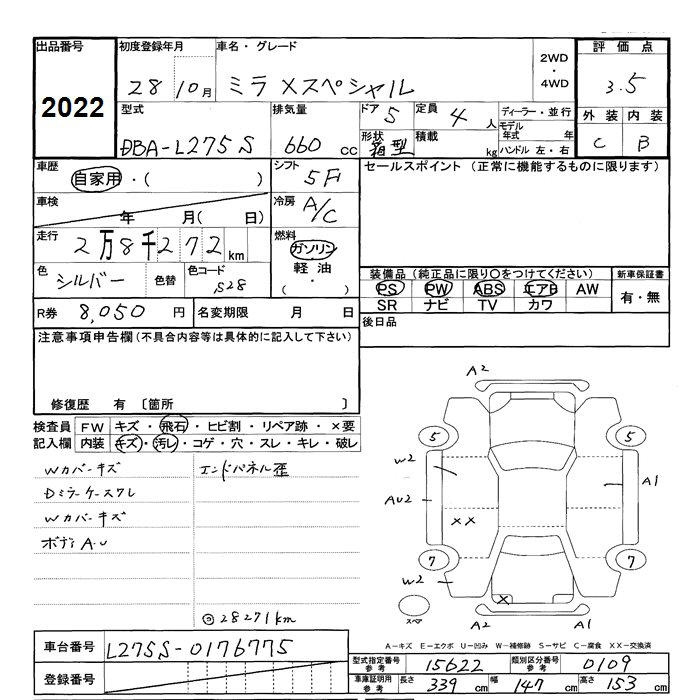 出品番号 初度登録年月 車名・グレード 2WD・4WD 評価点
2022 28 10月 ミラ Xスペシャル 3.5
型式 排気量 ドア 5 定員 4人 ディーラー・並行 外装 内装
DBA-L275S 660cc 形状 箱型 積載 kg モデル年式 年 ハンドル 左・右 C B
車歴 自家用・( ) シフト 5F セールスポイント (正常に機能するものに限ります)
車検 年 月( 日) 冷房 A/C
走行 2万8千272km 燃料 ガソリン
色 シルバー 色替 色コード S28 軽油 ( ・ )
装備品 (純正品に限り○をつけてください) 新車保証書
PS PW ABS エアB AW 有・無
SR ナビ TV カワ
R券 8,050円 名変期限 月 日 後日品
注意事項申告欄(不具合内容等は具体的に記入して下さい)
修復歴 有 〔箇所 〕
検査員 FW キズ・飛石・ヒビ割・リペア跡・×要
記入欄 内装 キズ・汚レ・コゲ・穴・スレ・キレ・破レ
Wカバーキズ エンドパネル歪
Dミラーケースワレ
Wカバーキズ
ボディA.U
◎28271km
A2
5 5
W2 A1
AU2
XX
7 7
W2
X
スペア A2 A1
A-キズ E-エクボ U-凹み W-補修跡 S-サビ C-腐食 XX-交換済
車台番号 L275S-0176775
登録番号
型式指定番号 参考 15622 類別区分番号 参考 0109
車庫証明用 参考 長さ 339cm 幅 147cm 高さ 153cm